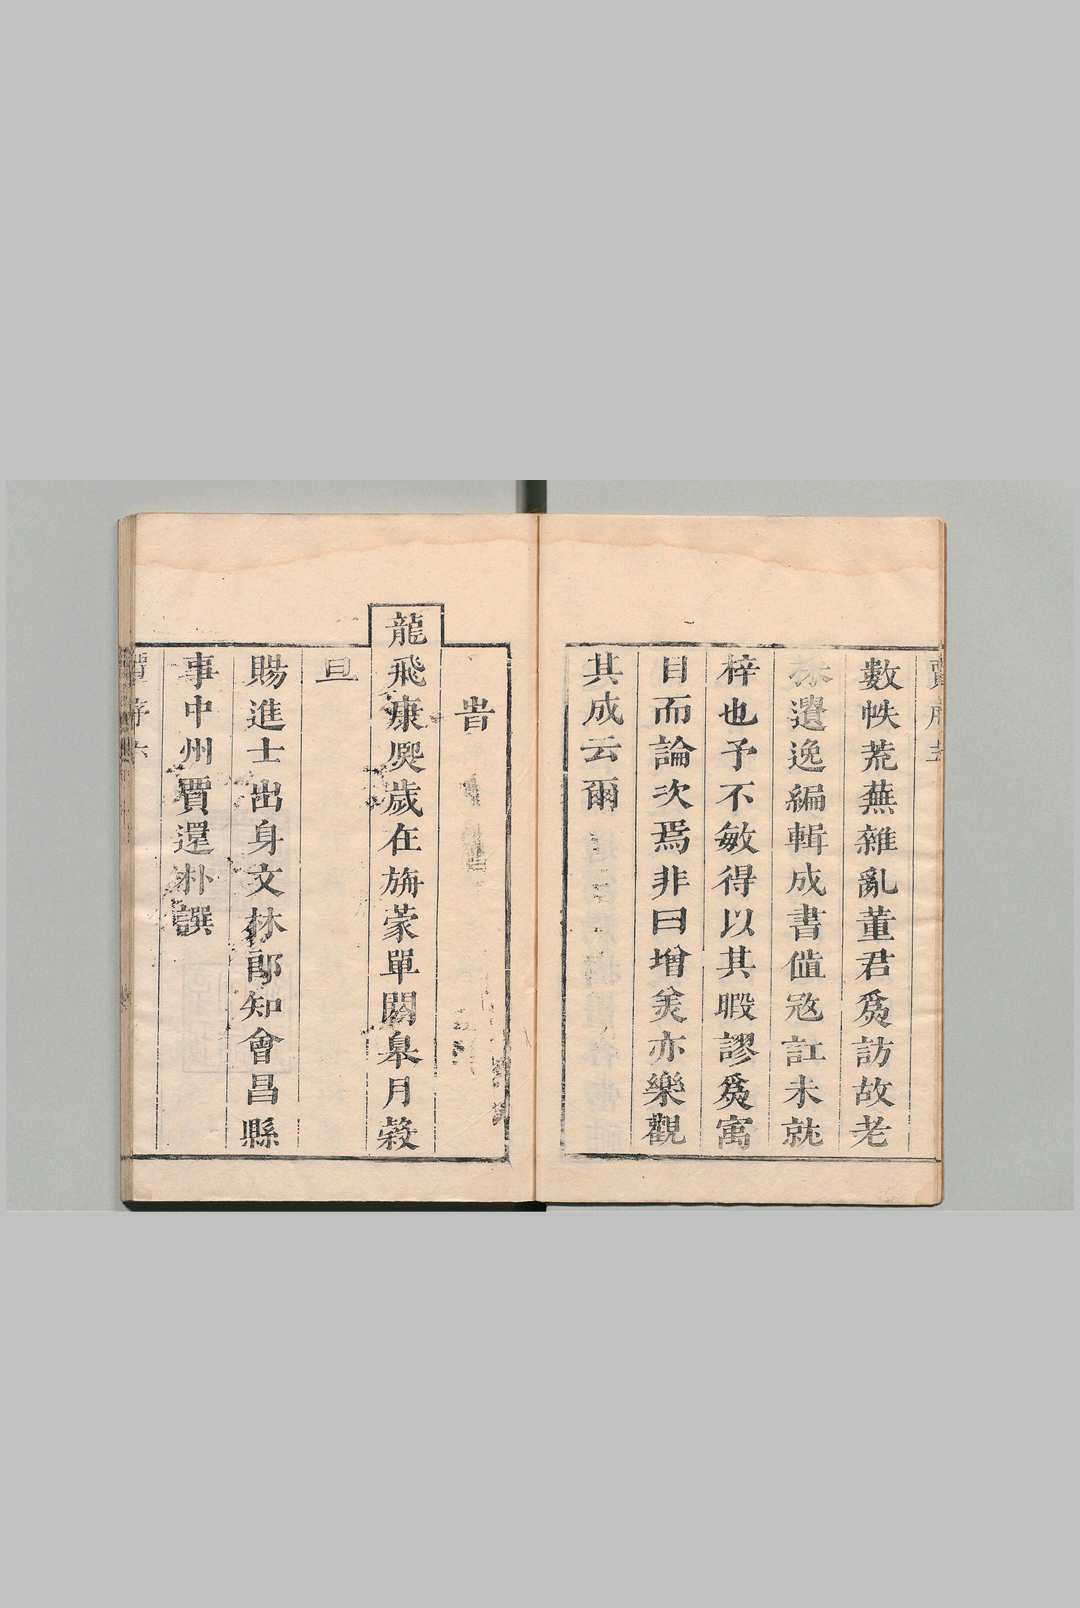 數帙荒蕪雜亂董君爲訪故老
遺逸編輯成書値寇訌未就
梓也予不敏得以其暇謬爲寓
目而論次焉非曰增美亦樂觀
其成云爾
旹
龍飛康熈歲在旃蒙單閼臯月穀
旦
賜進士出身文林郎知會昌縣
事中州賈還朴譔
賈序六